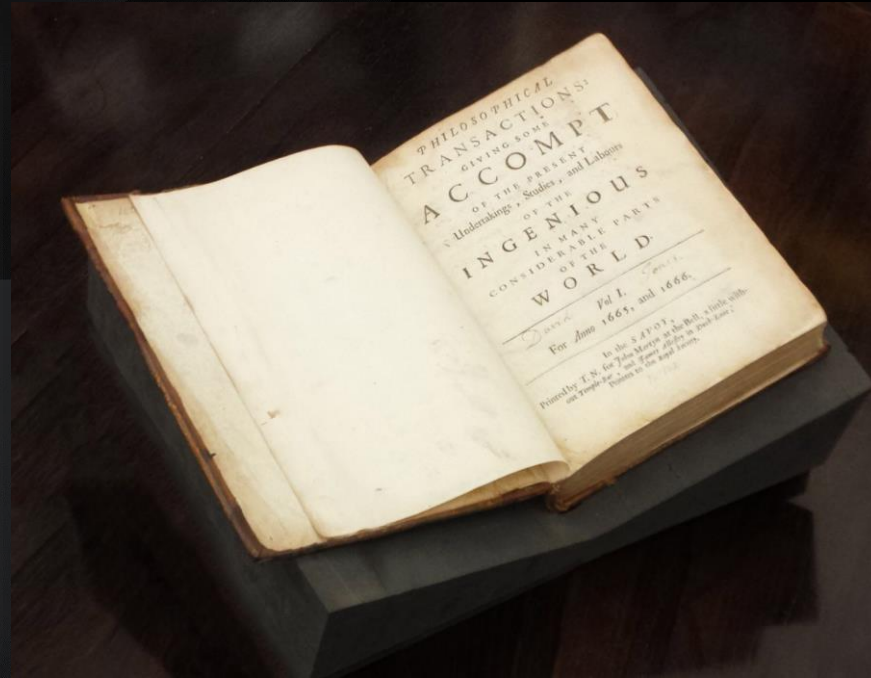 PHILOSOPHICAL
TRANSACTIONS:
GIVING SOME
ACCOMPT
OF THE PRESENT
Undertakings, Studies, and Labours
OF THE
INGENIOUS
IN MANY
CONSIDERABLE PARTS
OF THE
WORLD.
Vol I.
For Anno 1665, and 1666.
In the SAVOY,
Printed by T. N. for John Martyn at the Bell, a little with-
out Temple-Bar, and James Allestry in Duck-Lane,
Printers to the Royal Society.